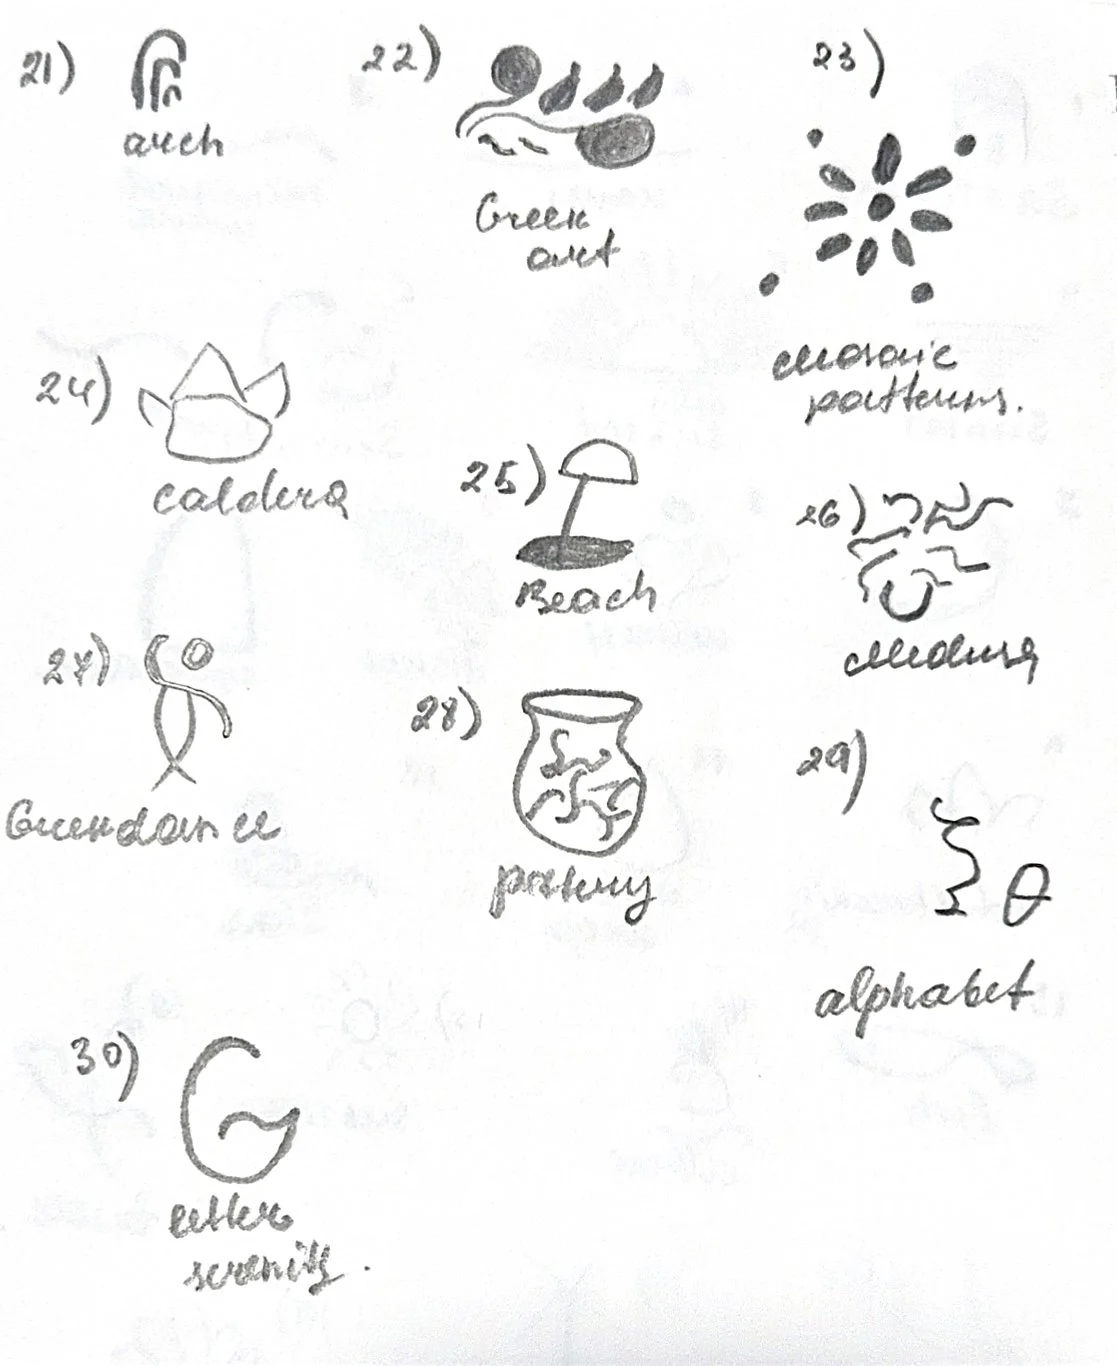 21)
arch
22)
Greek
art
23)
Mosaic
patterns.
24)
caldera
25)
Beach
26)
Medusa
27)
Greekdance
28)
pottery
29)
ξ θ
alphabet
30)
G
letter
serenity.